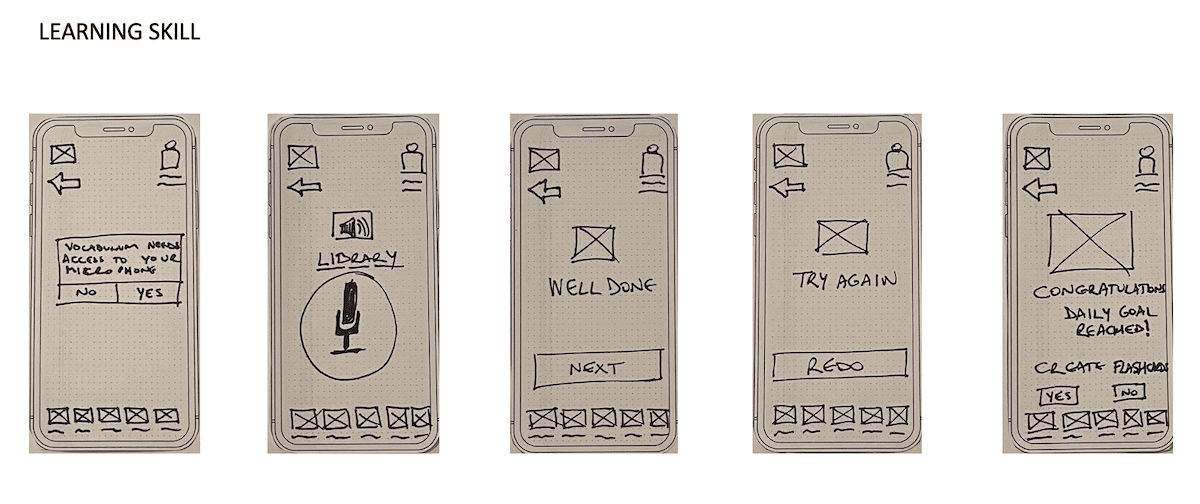 LEARNING SKILL
VOCABULUM NEEDS
ACCESS TO YOUR
MICROPHONE
NO YES
LIBRARY
WELL DONE
NEXT
TRY AGAIN
REDO
CONGRATULATIONS
DAILY GOAL
REACHED!
CREATE FLASHCARDS
YES NO